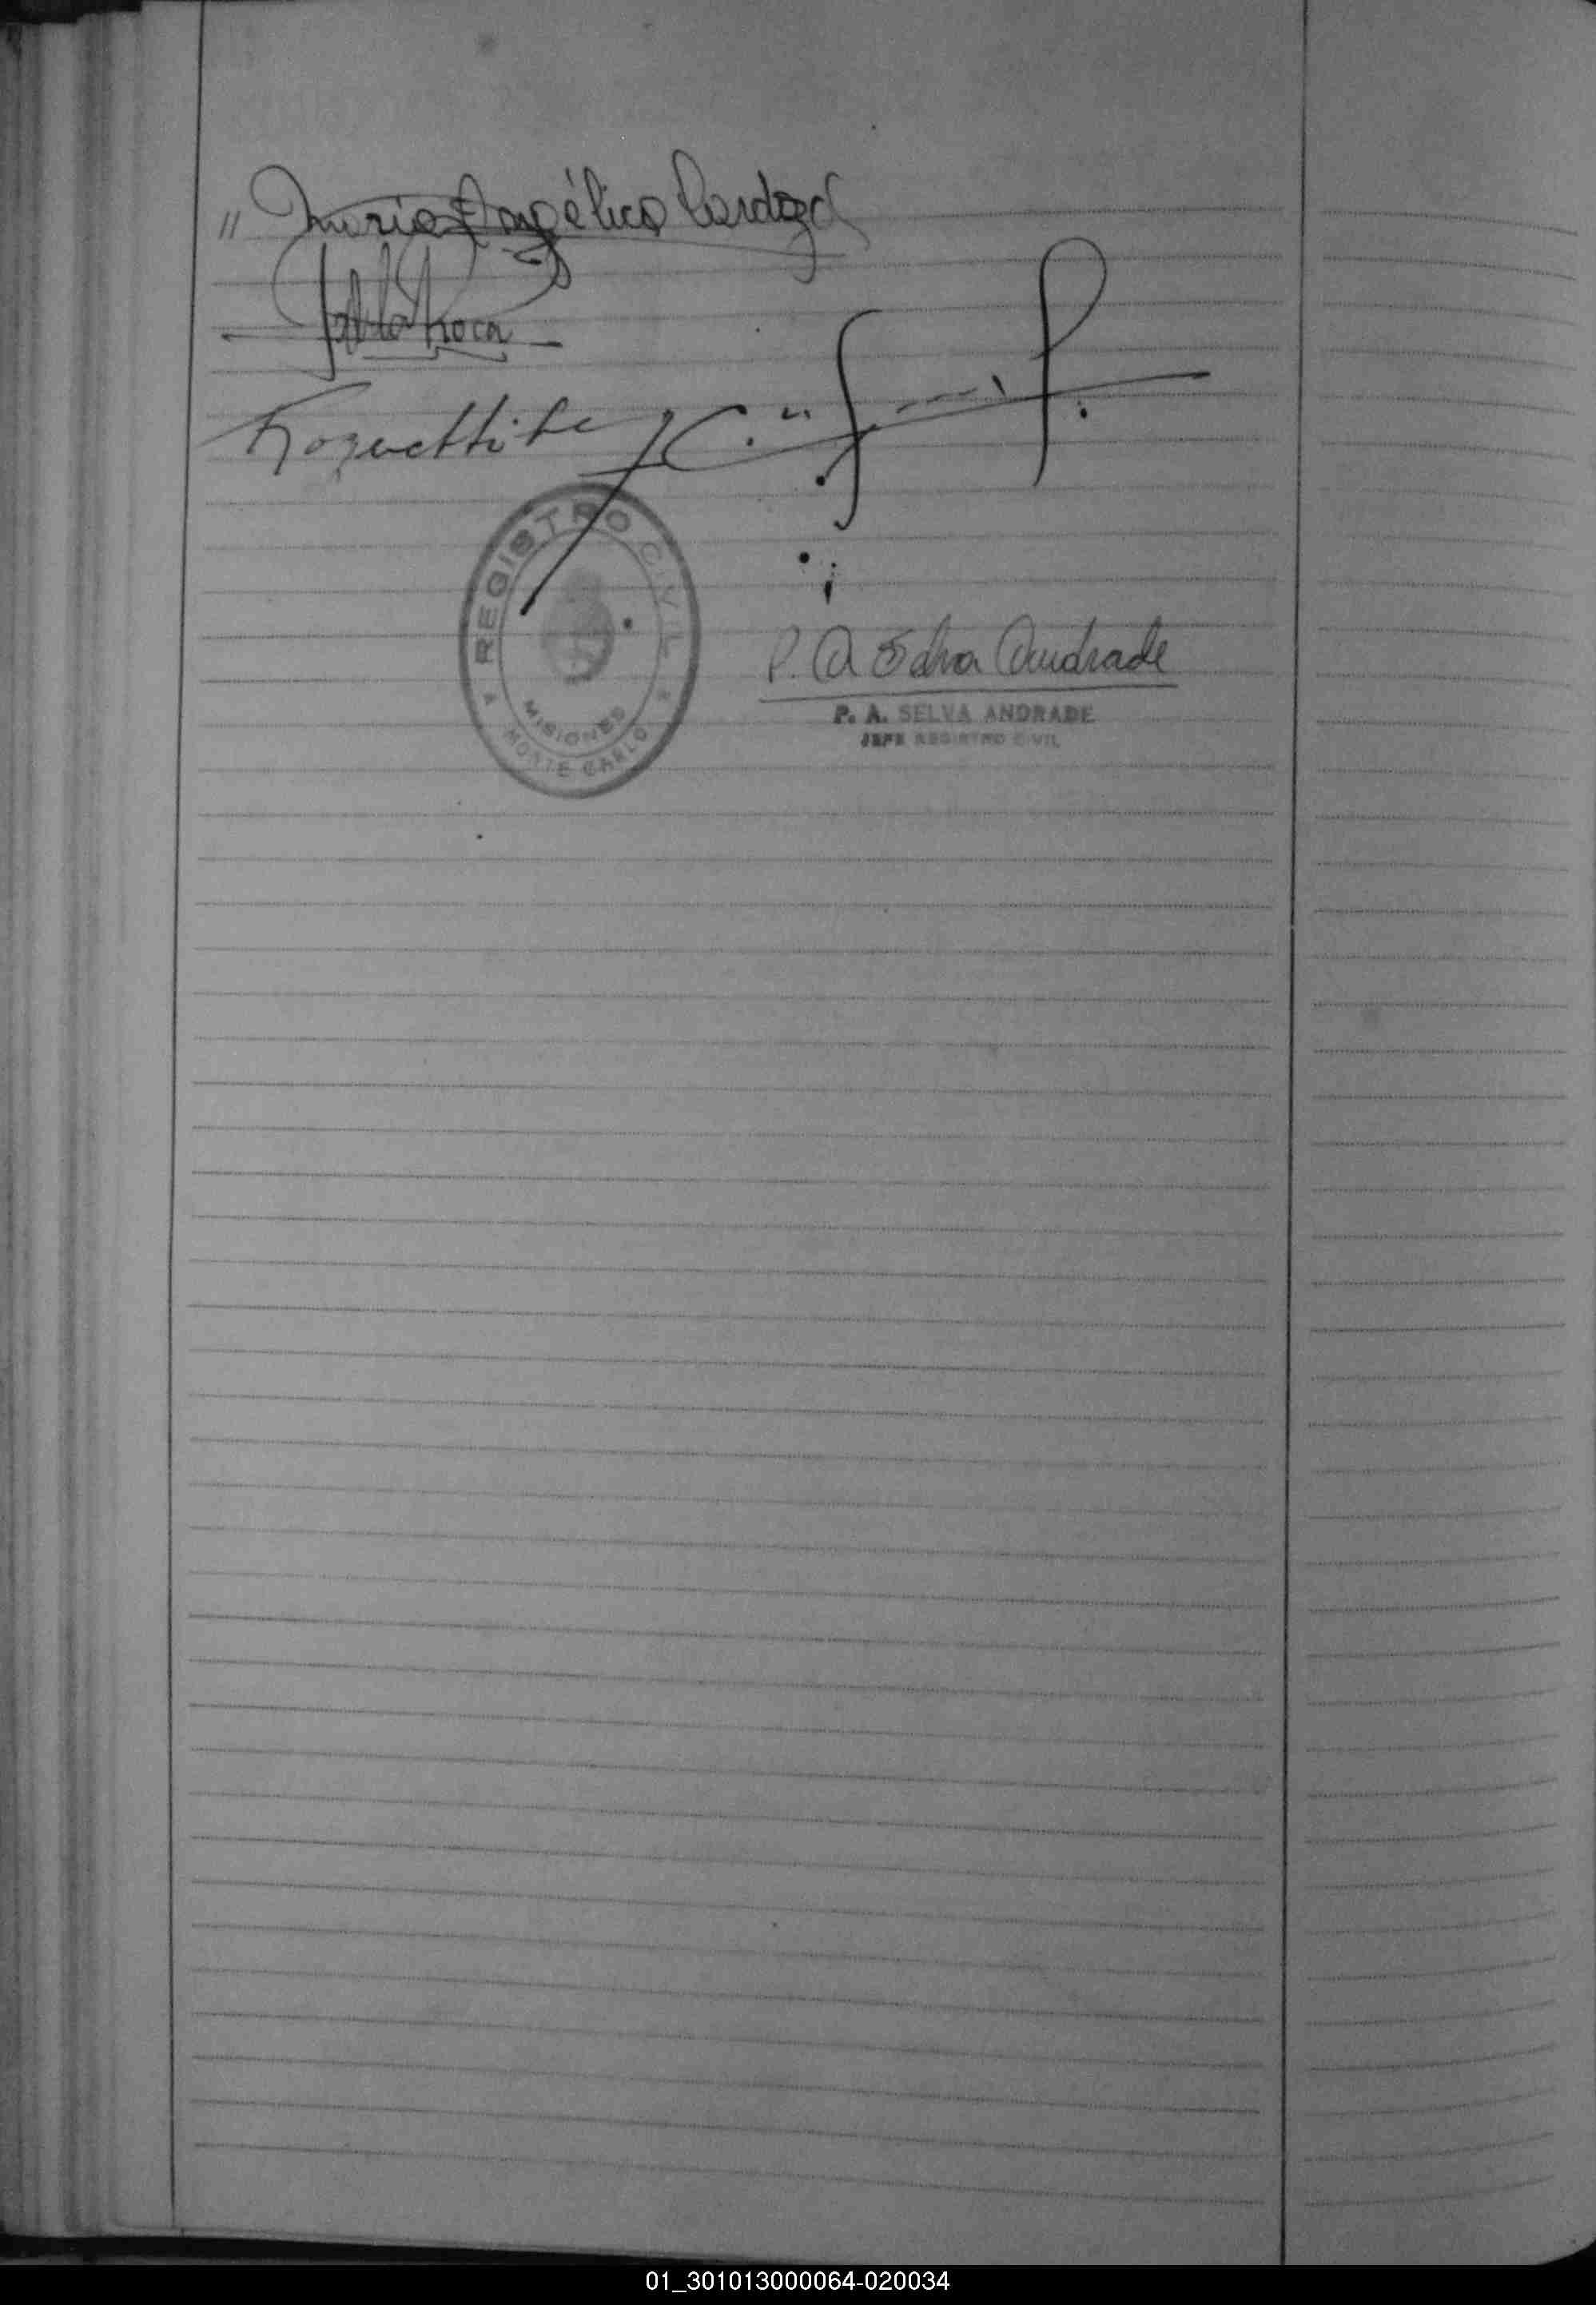 " Maria Angélica Cardozo
Pablo Roca
P. A. Selva Andrade
REGISTRO CIVIL
MISIONES
MONTE CARLO
P. A. SELVA ANDRADE
JEFE REGISTRO CIVIL
01_301013000064-020034